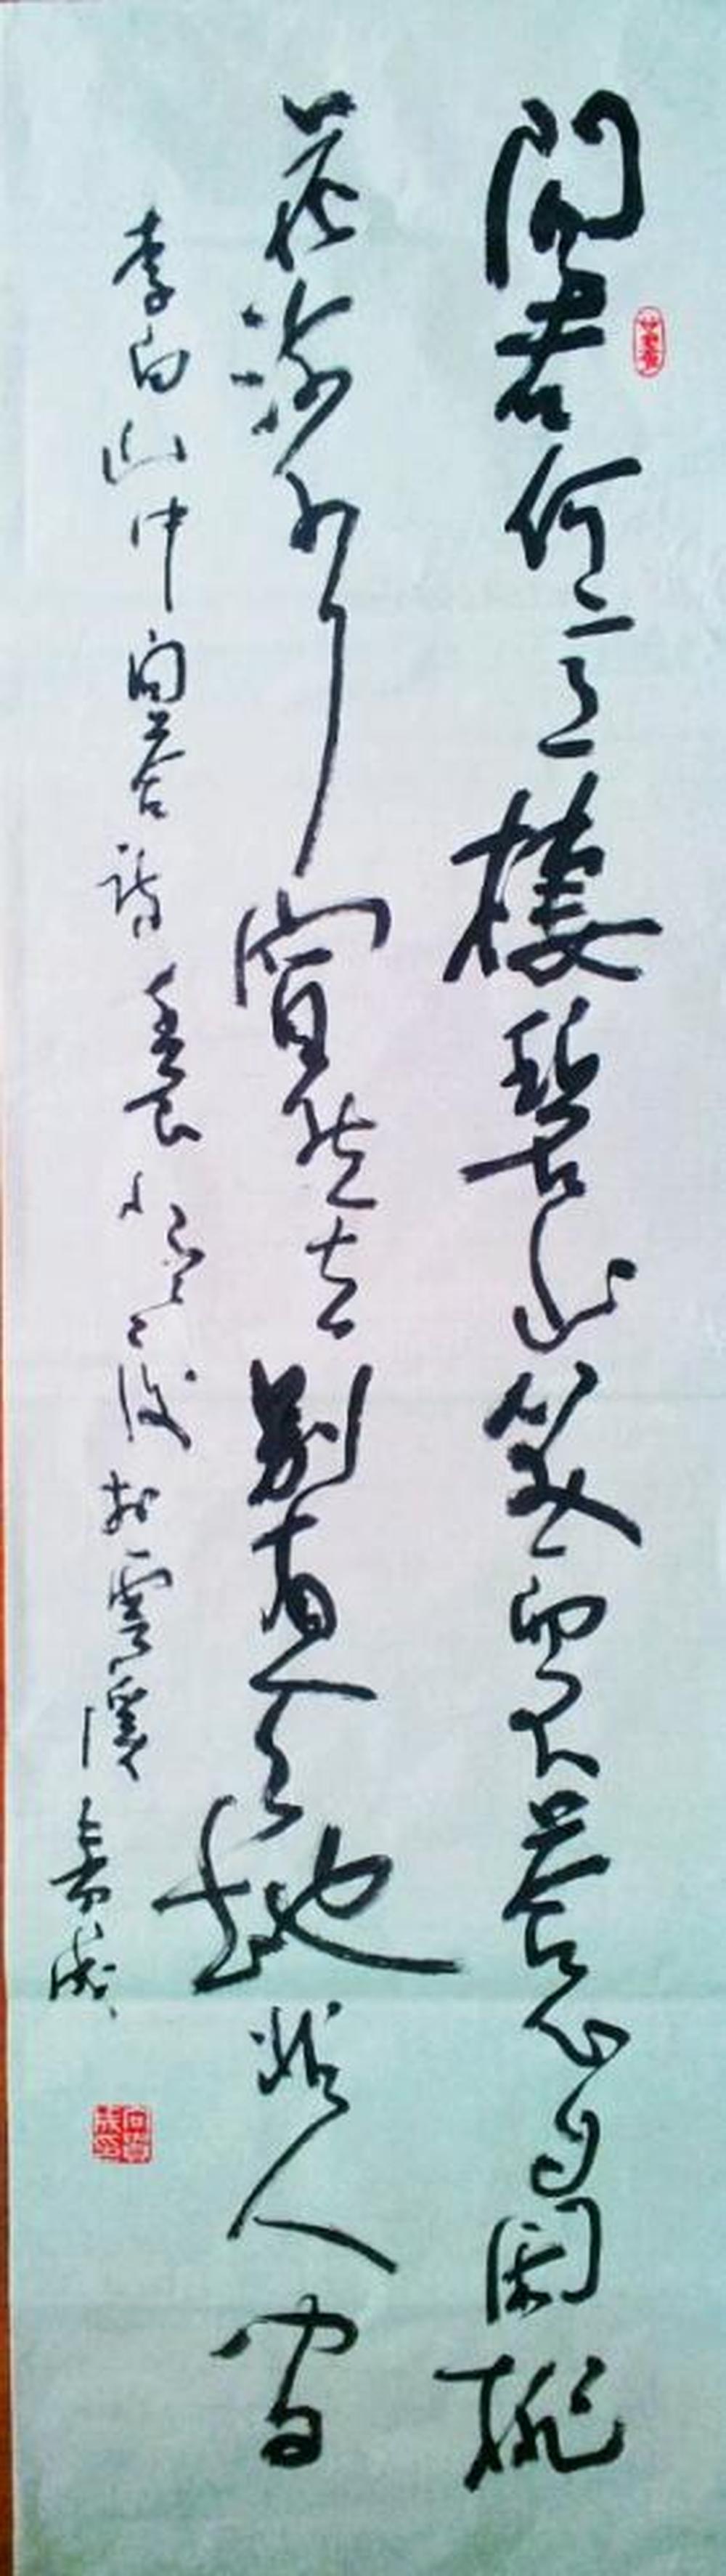 問君何意棲碧山笑而不答心自閑桃
花流水窅然去別有天地非人間
李白山中問答詩於雲溪